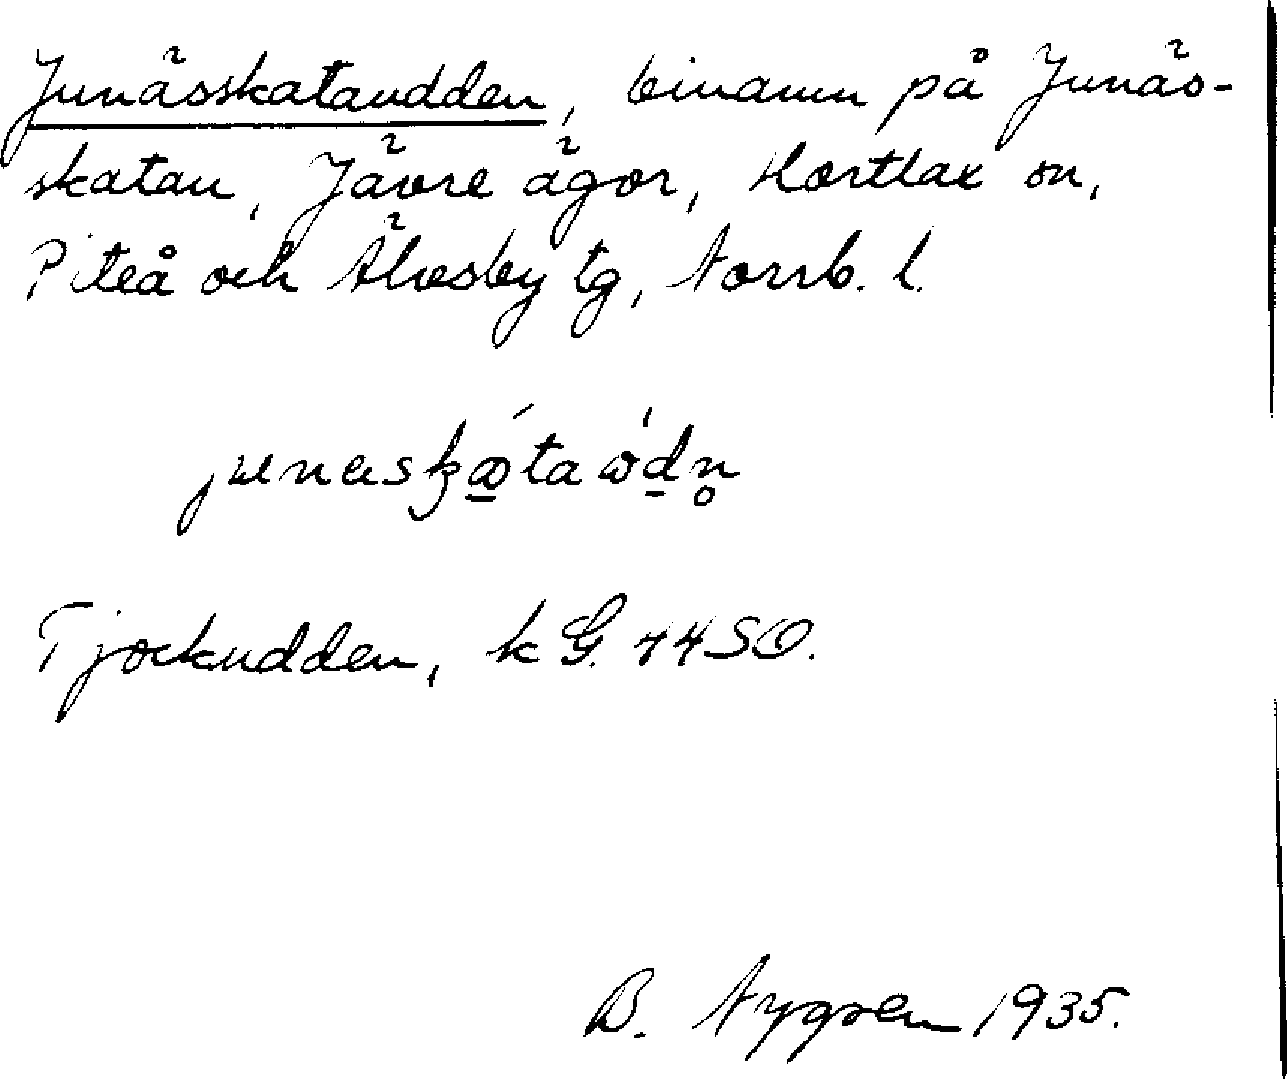 Junässkataudden, binamn på Junäs-
skatan, Jävre ägor, Hortlax sn,
Piteå och Älvsby tg, Norrb. l.
Tjockudden, k G. 44 SO.
B. Nygren 1935.